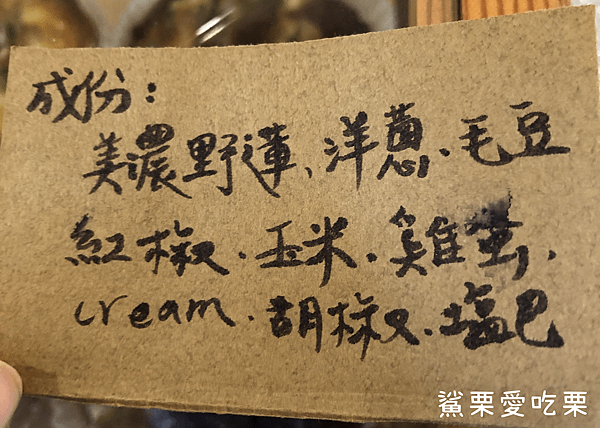 成份：
美濃野蓮、洋蔥．毛豆
紅椒．玉米．雞蛋，
cream．胡椒．塩巴
鯊栗愛吃栗